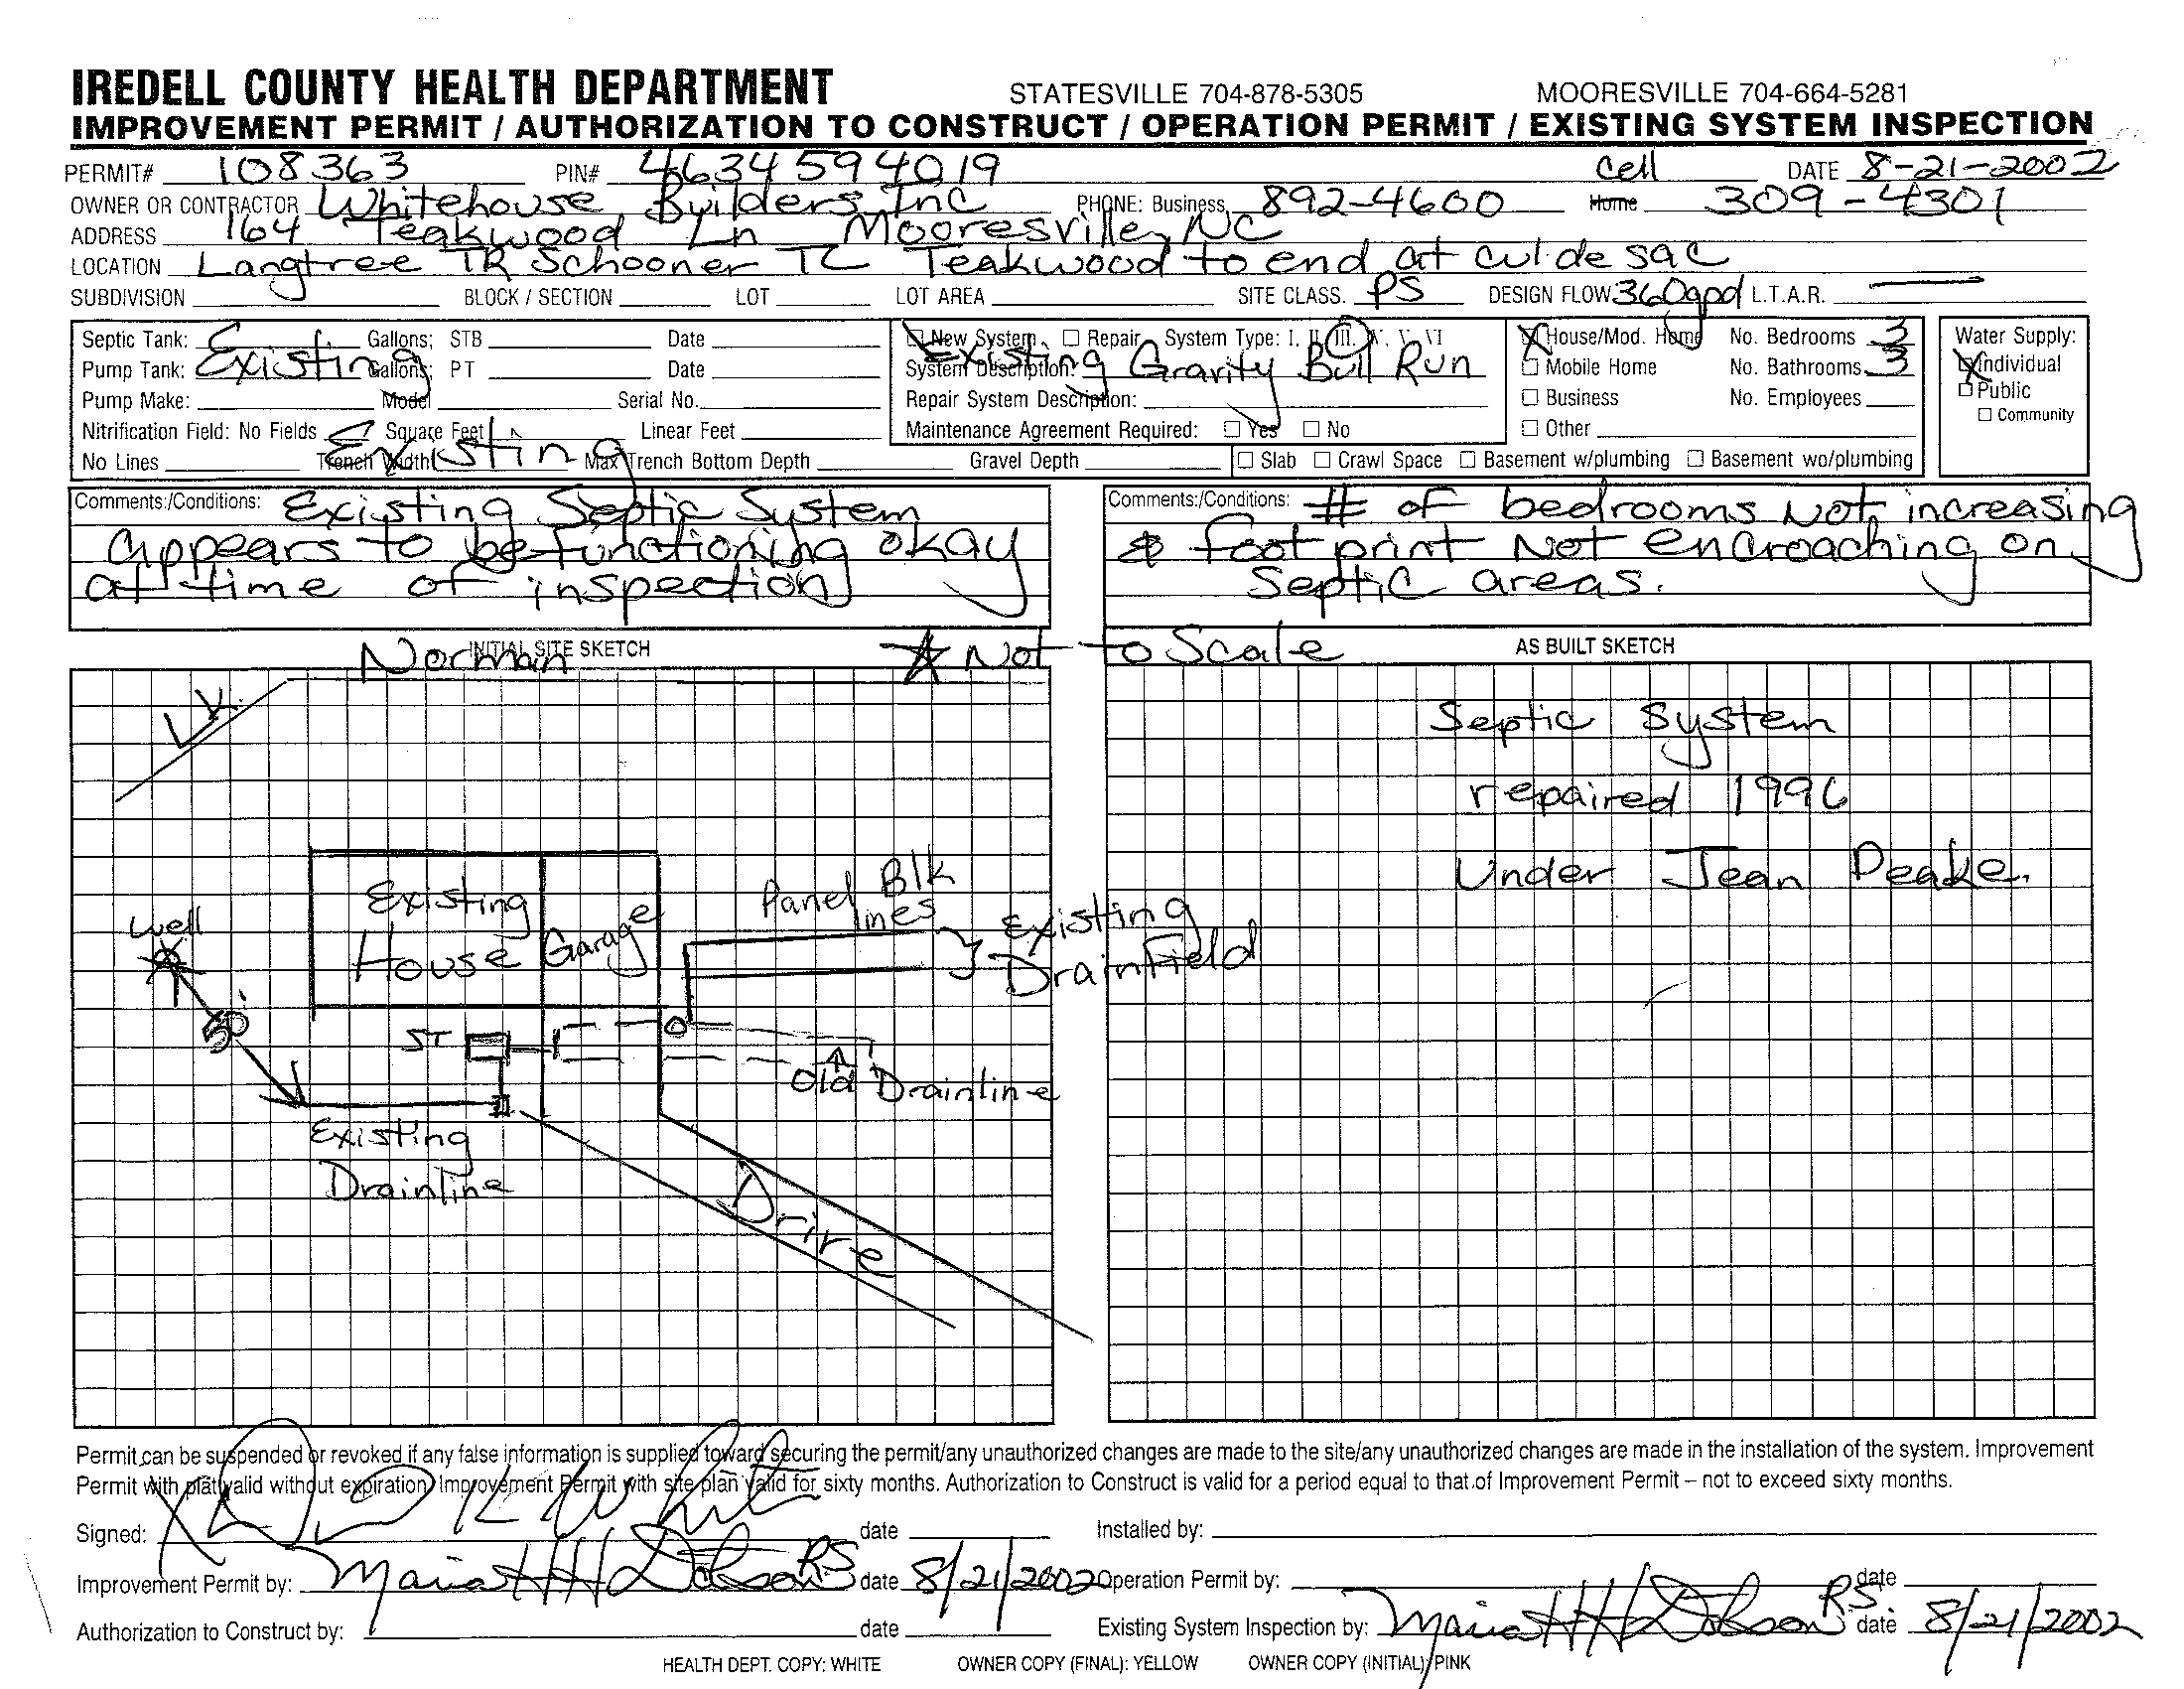 IREDELL COUNTY HEALTH DEPARTMENT STATESVILLE 704-878-5305 MOORESVILLE 704-664-5281
IMPROVEMENT PERMIT / AUTHORIZATION TO CONSTRUCT / OPERATION PERMIT / EXISTING SYSTEM INSPECTION
PERMIT# 108363 PIN# 4634594019 Cell DATE 8-21-2002
OWNER OR CONTRACTOR Whitehouse Builders, Inc PHONE: Business 892-4600 Home 309-4301
ADDRESS 164 Teakwood Ln Mooresville, NC
LOCATION Langtree TR Schooner TL Teakwood to end at cul de sac
SUBDIVISION BLOCK / SECTION LOT LOT AREA SITE CLASS. PS DESIGN FLOW 360gpd L.T.A.R. —
Septic Tank: Gallons; STB Date
Pump Tank: Existing Gallons: PT Date
Pump Make: Model Serial No.
Nitrification Field: No Fields Square Feet Linear Feet
No Lines Existing Trench Width Max Trench Bottom Depth Gravel Depth
New System Repair System Type: I, II, III, IV, V, VI
System Description: Existing Gravity Bull Run
Repair System Description:
Maintenance Agreement Required: Yes No
House/Mod. Home No. Bedrooms 3
Mobile Home No. Bathrooms 3
Business No. Employees
Other
Slab Crawl Space Basement w/plumbing Basement wo/plumbing
Water Supply:
Individual
Public
Community
Comments:/Conditions: Existing Septic System
appears to be functioning okay
at time of inspection
Comments:/Conditions: # of bedrooms Not increasing
& foot print Not encroaching on
Septic areas.
INITIAL SITE SKETCH Not to Scale
Lk. Norman
Existing
House Garage
Panel Blk
lines
Existing
Drainfield
Well
50'
ST
Old Drainline
Existing
Drainline
Drive
AS BUILT SKETCH
Septic System
repaired 1996
Under Jean Peake.
Permit can be suspended or revoked if any false information is supplied toward securing the permit/any unauthorized changes are made to the site/any unauthorized changes are made in the installation of the system. Improvement
Permit with plat valid without expiration, Improvement Permit with site plan valid for sixty months. Authorization to Construct is valid for a period equal to that of Improvement Permit – not to exceed sixty months.
Signed: X date
Installed by:
Improvement Permit by: Maria H H Dobson RS date 8/21/2002
Operation Permit by: date
Authorization to Construct by: date
Existing System Inspection by: Maria H H Dobson R.S. date 8/21/2002
HEALTH DEPT. COPY: WHITE OWNER COPY (FINAL): YELLOW OWNER COPY (INITIAL): PINK